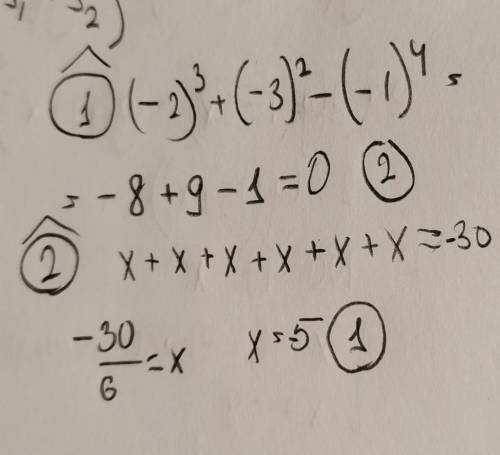 2)
① (-2)³+(-3)²-(-1)⁴=
=-8+9-1=0 ②
② x+x+x+x+x+x=-30
-30/6=x x=-5 ①